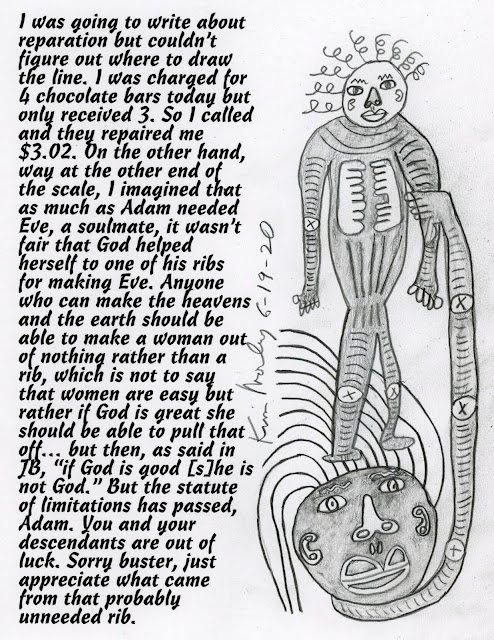 I was going to write about
reparation but couldn't
figure out where to draw
the line. I was charged for
4 chocolate bars today but
only received 3. So I called
and they repaired me
$3.02. On the other hand,
way at the other end of
the scale, I imagined that
as much as Adam needed
Eve, a soulmate, it wasn't
fair that God helped
herself to one of his ribs
for making Eve. Anyone
who can make the heavens
and the earth should be
able to make a woman out
of nothing rather than a
rib, which is not to say
that women are easy but
rather if God is great she
should be able to pull that
off... but then, as said in
JB, “if God is good [s]he is
not God.” But the statute
of limitations has passed,
Adam. You and your
descendants are out of
luck. Sorry buster, just
appreciate what came
from that probably
unneeded rib.
6-19-20